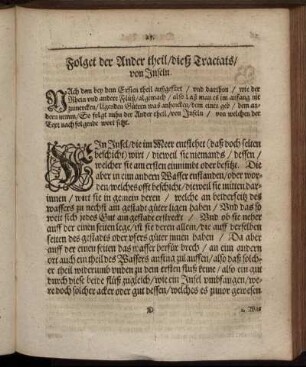 25.
Folget der Ander theil / dieß Tractats /
von Inseln
NAch dem bey dem Ersten theil auffgeklärt / und darthon / wie der
Rhein und andere Flüß / allgemach / also daß man es im anfang nit
gemercken / Ligenden Gütern was anhencken / dem einen geb / dem an-
dern nemm / So folgt nuhn der Ander theil / von Inseln / von welchen der
Text nachfolgende wort setzt.
EIn Insel / die im Meer entsteht (daß doch selten
beschicht) wirt / dieweil sie niemands / dessen /
welcher sie am ersten einnimmt oder besitzt. Die
aber in einn andern Wasser entstanden / oder wor-
den / welches offt beschicht / dieweil sie mitten darinnen /
wirt sie in gemein deren / welche an beiderseitz deß
wassers zu nechst am gestad güter ligen haben / Und das so
weit sich jedes Gut am gestade erstreckt / Und ob sie neher
auff der einen seiten lege / ist sie deren allein / die auff derselben
seiten des gestadts oder ufers güter innen haben / Da aber
auff der einen seiten das wasser herfür brech / an einn andern
ort auch ein theil des Wassers anfing zu lauffen / also daß solch-
er theil widerumb unden zu dem ersten fluß keme / also ein gut
durch diese beite flüß zugleich / wie ein Insel umbfangen / we-
re doch solcher acker oder gut dessen / welches es zuvor gewesen
D